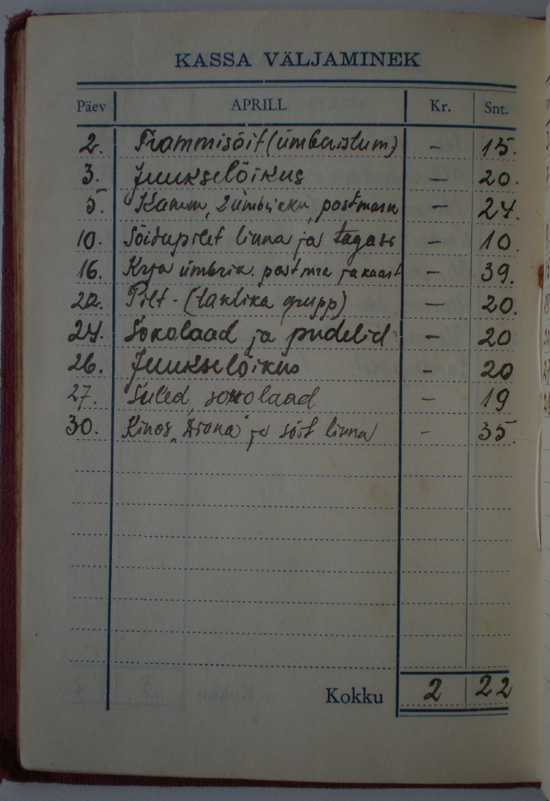 KASSA VÄLJAMINEK
Päev APRILL Kr. Snt.
2. Trammisõit (ümberistum) – 15.
3. Juukselõikus – 20.
5. Kamm, postmark – 24.
10. Sõidupilet linna ja tagasi – 10.
16. Kirja ümbrik, postmra ja kaart – 39.
22. Pilt - (taktika grupp) – 20.
24. Šokolaad ja pudelid – 20
26. Juukselõikus – 20
27. Suled šokolaad – 19
30. Kinos ja sõit linna – 35.
Kokku 2 22